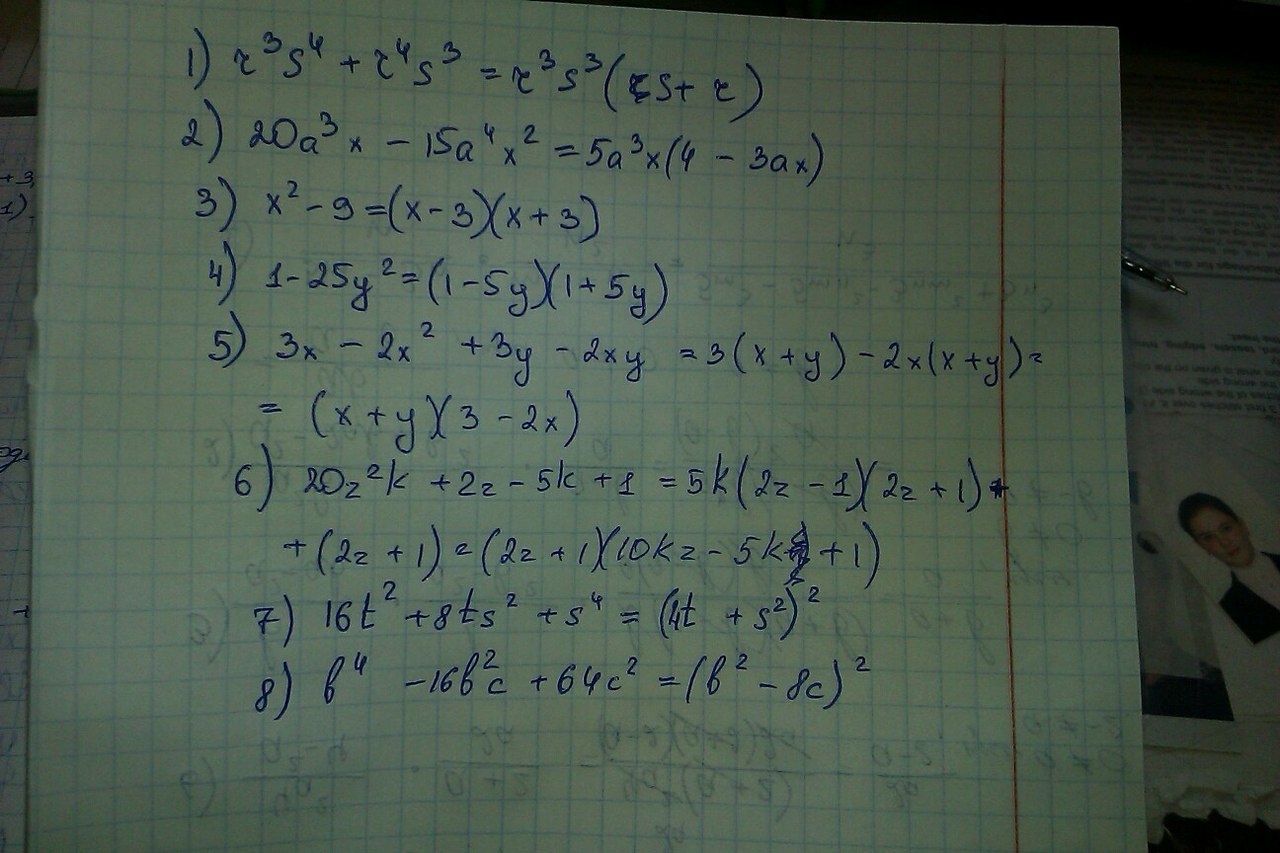 1) r³s⁴ + r⁴s³ = r³s³(s + r)
2) 20a³x - 15a⁴x² = 5a³x(4 - 3ax)
3) x² - 9 = (x - 3)(x + 3)
4) 1 - 25y² = (1 - 5y)(1 + 5y)
5) 3x - 2x² + 3y - 2xy = 3(x + y) - 2x(x + y) =
= (x + y)(3 - 2x)
6) 20z²k + 2z - 5k + 1 = 5k(2z - 1)(2z + 1) +
+ (2z + 1) = (2z + 1)(10kz - 5k + 1)
7) 16t² + 8ts² + s⁴ = (4t + s²)²
8) b⁴ - 16b²c + 64c² = (b² - 8c)²